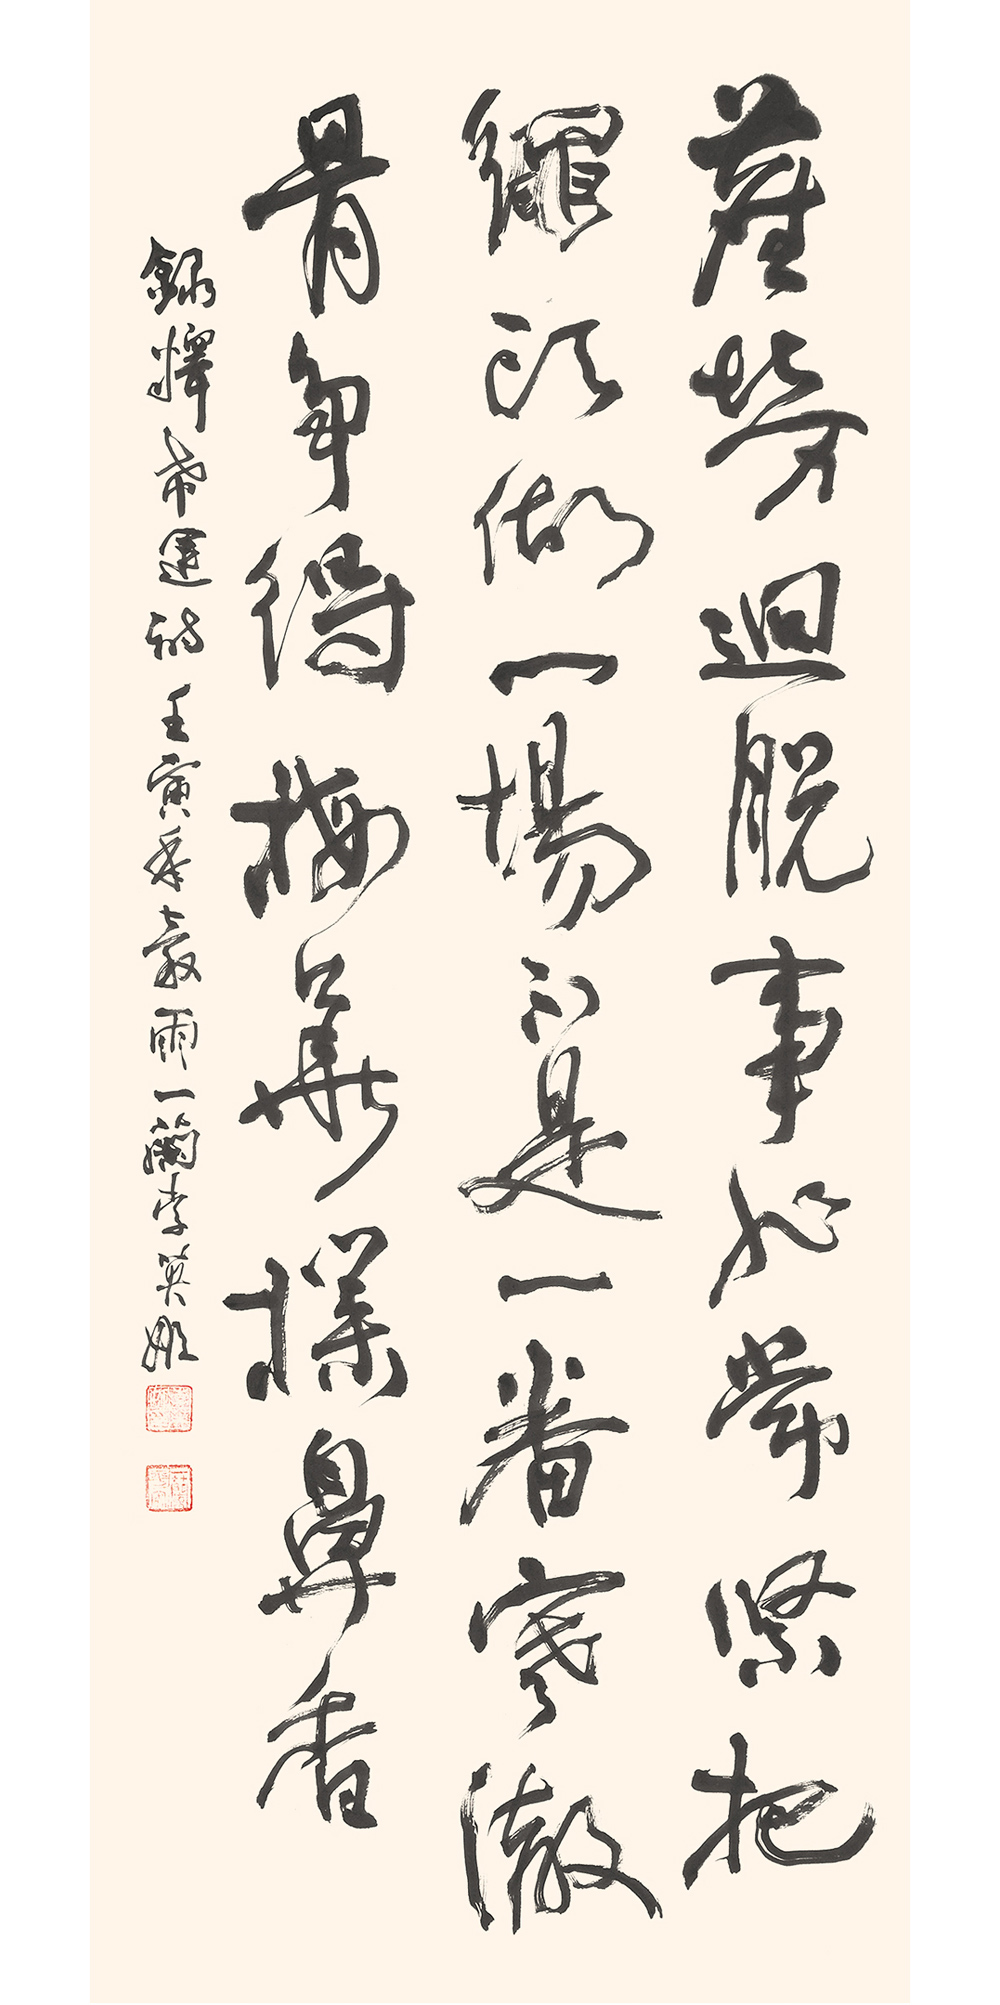 塵勞逈脫事非常緊把
繩頭做一場不是一番寒徹
骨爭得梅華撲鼻香
錄釋希運詩壬寅季穀雨一蘭李英